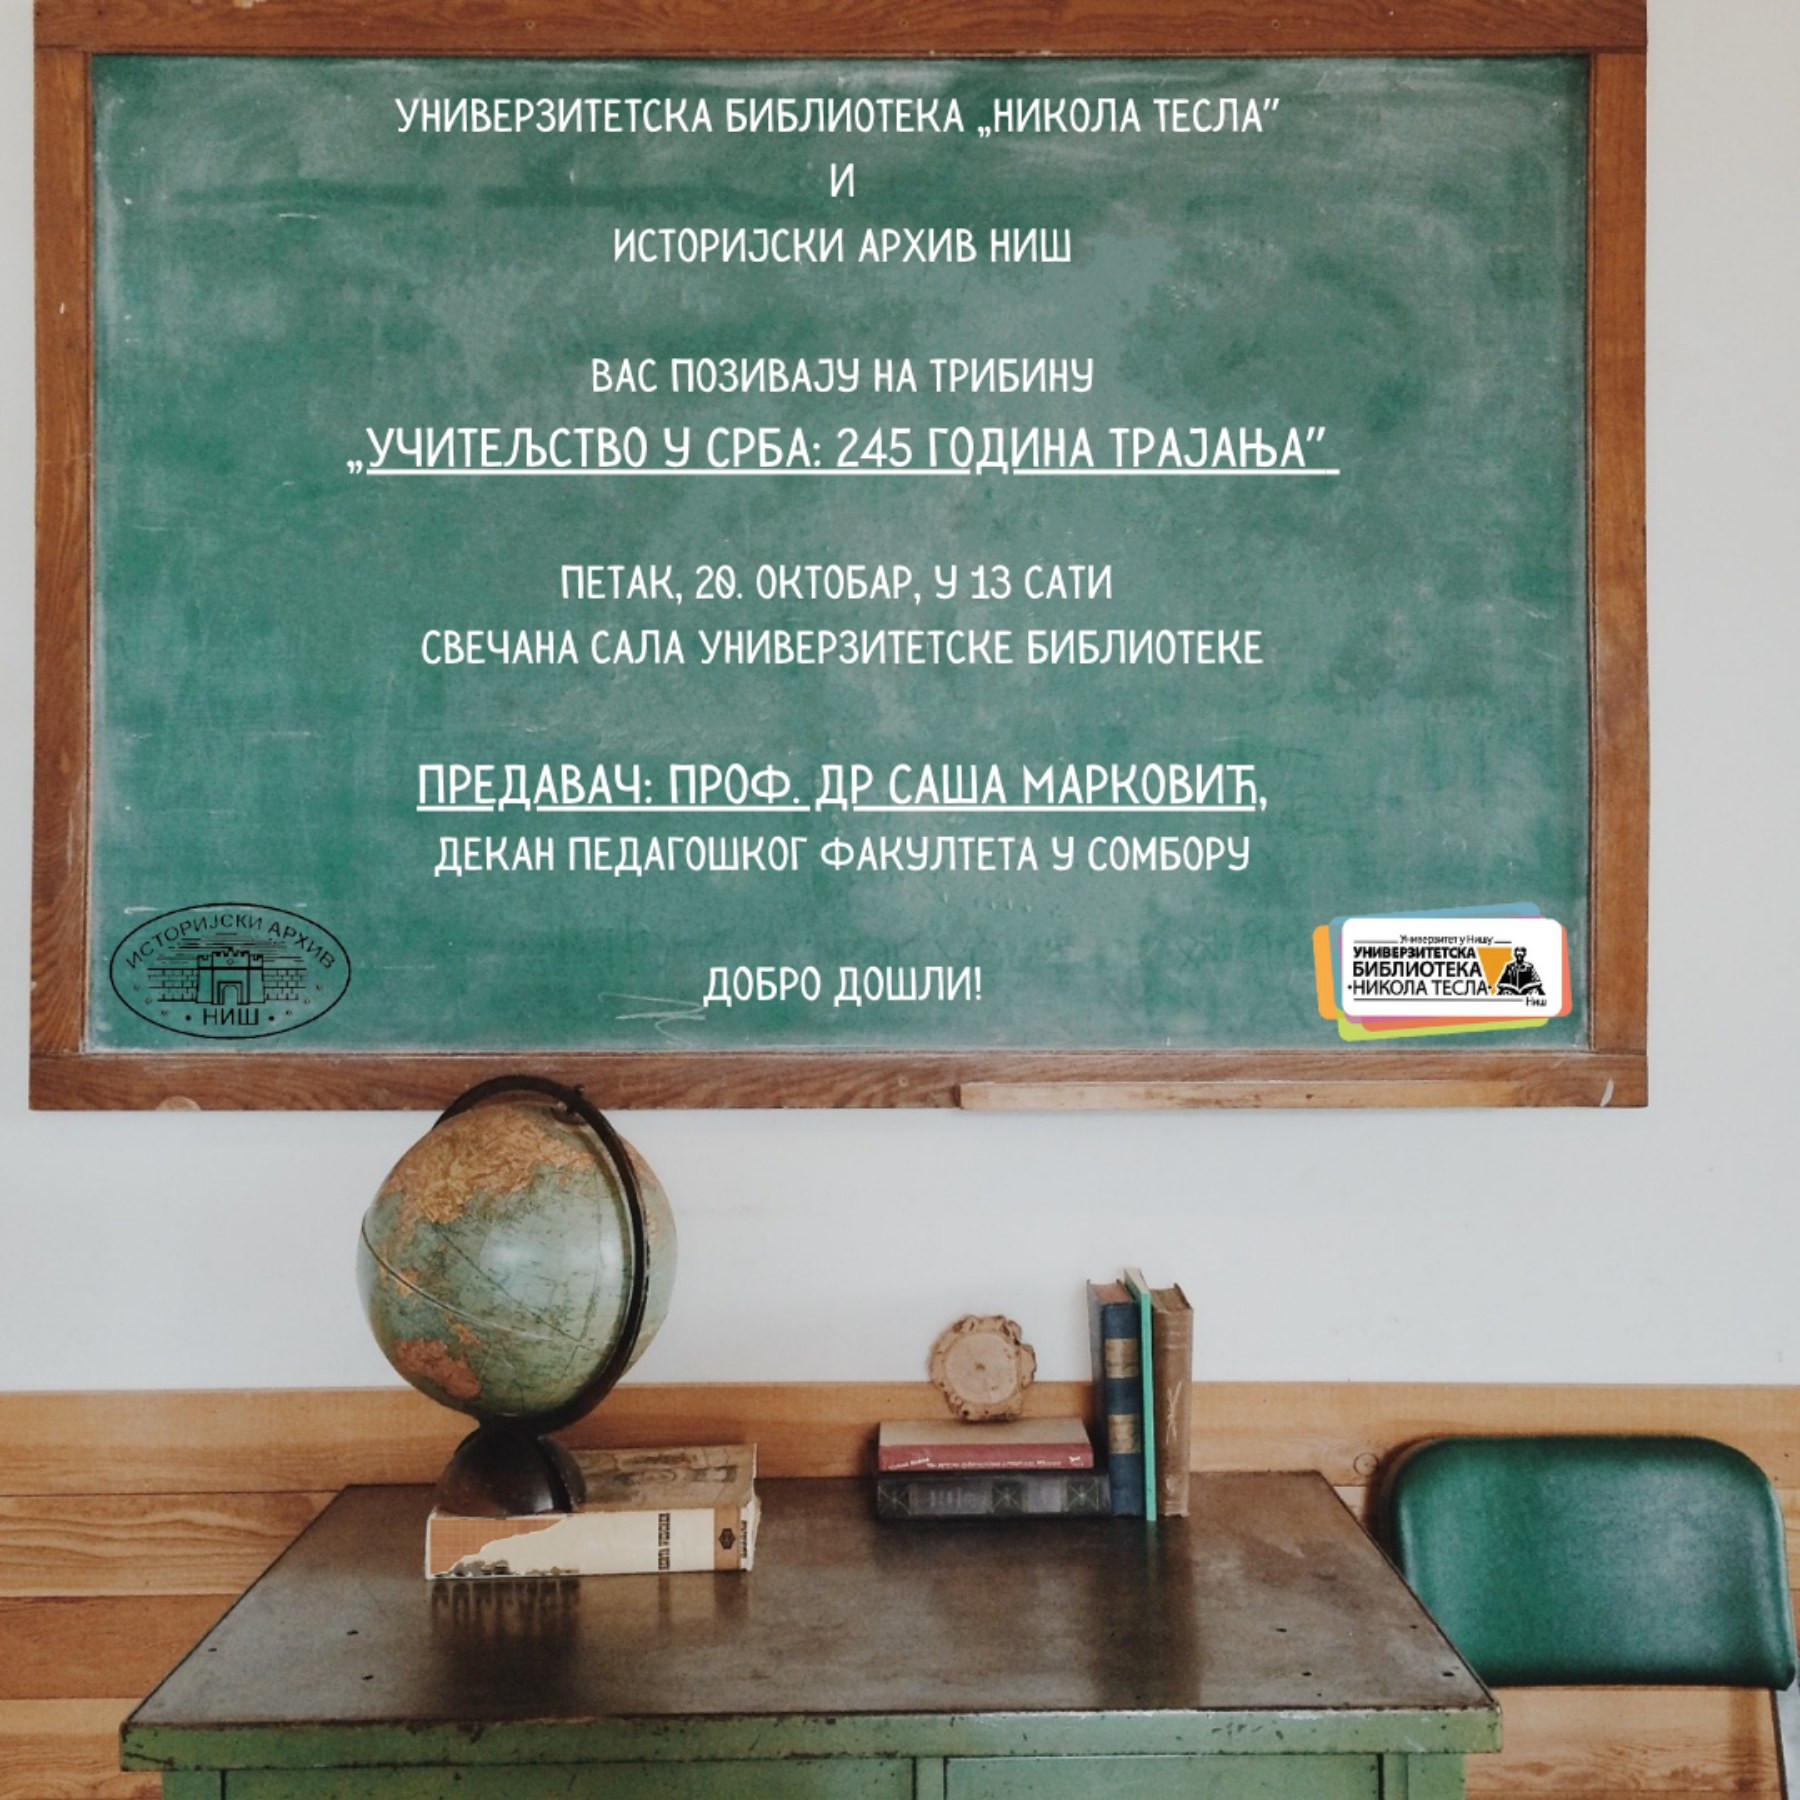 УНИВЕРЗИТЕТСКА БИБЛИОТЕКА „НИКОЛА ТЕСЛА”
И
ИСТОРИЈСКИ АРХИВ НИШ
ВАС ПОЗИВАЈУ НА ТРИБИНУ
„УЧИТЕЉСТВО У СРБА: 245 ГОДИНА ТРАЈАЊА”
ПЕТАК, 20. ОКТОБАР, У 13 САТИ
СВЕЧАНА САЛА УНИВЕРЗИТЕТСКЕ БИБЛИОТЕКЕ
ПРЕДАВАЧ: ПРОФ. ДР САША МАРКОВИЋ,
ДЕКАН ПЕДАГОШКОГ ФАКУЛТЕТА У СОМБОРУ
ДОБРО ДОШЛИ!
ИСТОРИЈСКИ АРХИВ
• НИШ •
Универзитет у Нишу
УНИВЕРЗИТЕТСКА
БИБЛИОТЕКА
•НИКОЛА ТЕСЛА•
Ниш